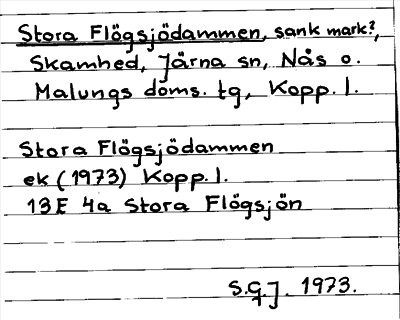 Stora Flögsjödammen, sank mark?,
Skamhed, Järna sn, Nås o.
Malungs doms. tg, Kopp. l.
Stora Flögsjödammen
ek (1973) Kopp. l.
13E 4a Stora Flögsjön
S.G.J. 1973.